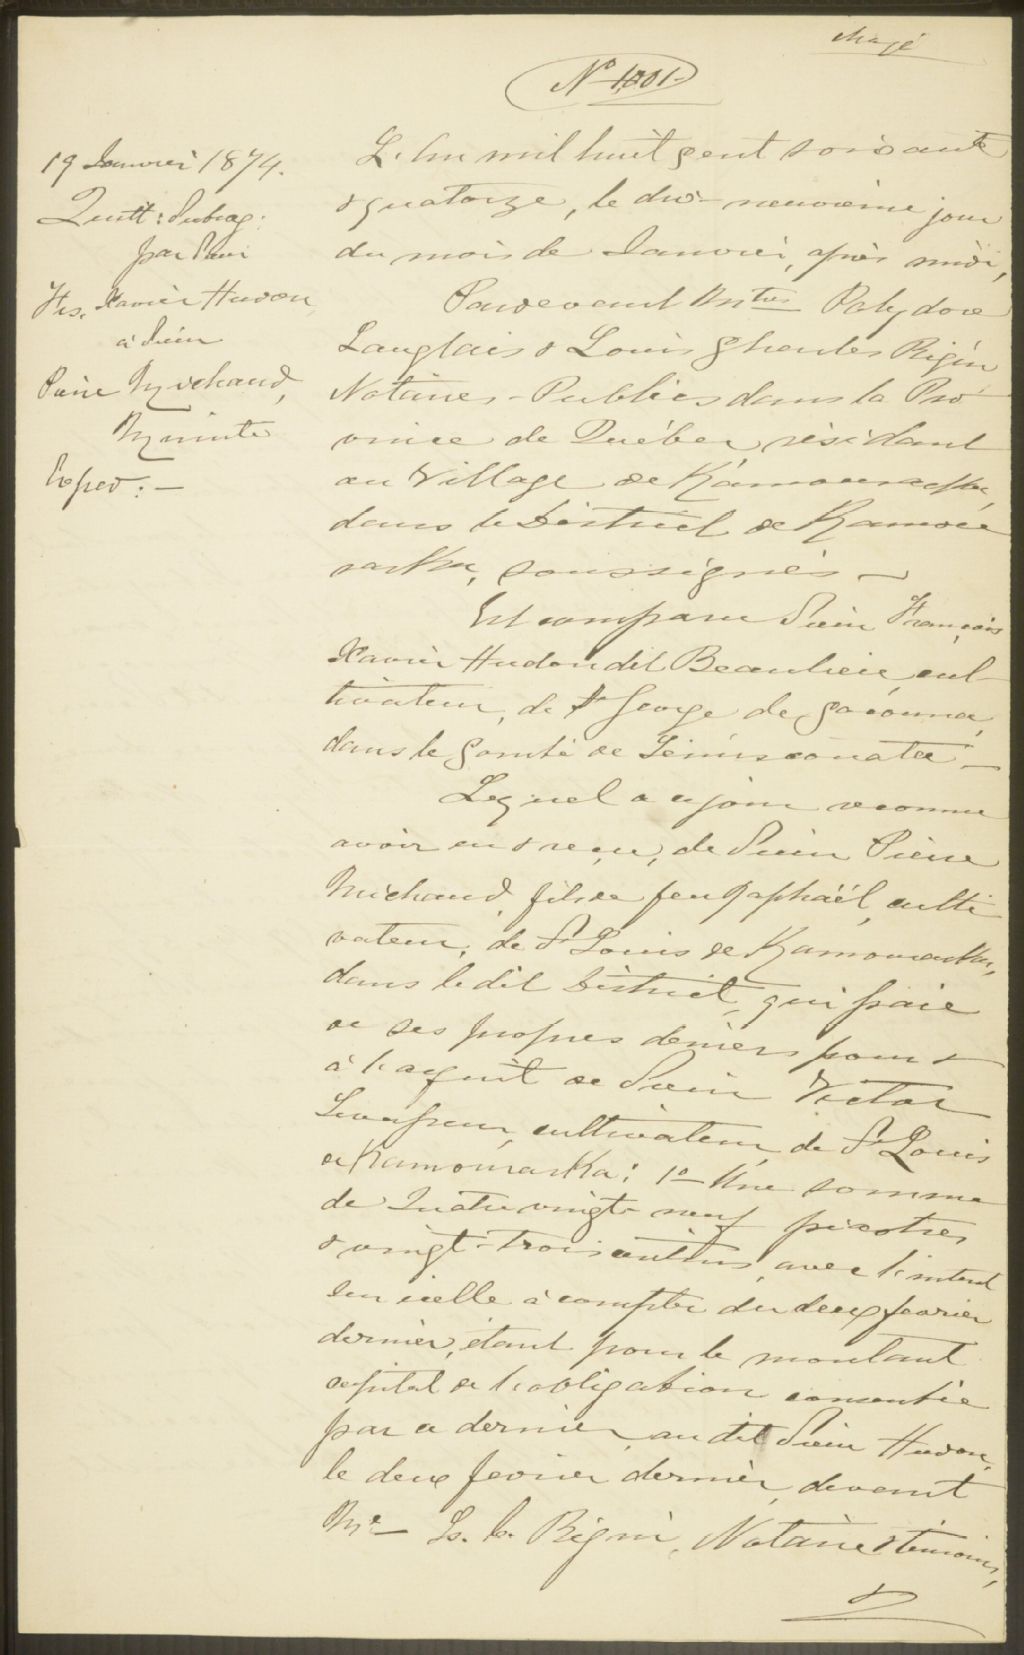 N° 1,001.
19 Janvier 1874.
Quitt: Subrog:
par Sieur
Frs. Xavier Hudon
à Sieur
Pierre Michaud,
Minute
Exped: —
L'An mil huit cent soixante
& quatorze, le dix-neuvième jour
du mois de Janvier, après midi,
Pardevant Mtres Polydore
Langlais & Louis Charles Bégin
Notaires-Publics dans la Pro
vince de Québec, résidant
au Village de Kamouraska,
dans le District de Kamou
raska, soussignés —
Est comparu Sieur François
Xavier Hudon dit Beaulieu, cul
tivateur, de St George de Cacouna,
dans le Comté de Témiscouata —
Lequel a ce jour reconnu
avoir eu & reçu, de Sieur Pierre
Michaud, fils de feu Raphaël, culti
vateur, de St Louis de Kamouraska,
dans le dit District, qui paie
de ses propres deniers pour &
à l'acquit de Sieur Victor
Levasseur, cultivateur, de St Louis
de Kamouraska: 1° Une somme
de Quatre vingt-neuf piastres
& vingt-trois centins, avec l'intérêt
sur icelle à compter du deux février
dernier, étant pour le montant
capital de l'obligation consentie
par ce dernier, au dit Sieur Hudon,
le deux fevrier dernier, devant
Mre Ls. Cs. Bégin, Notaire & témoins,
&